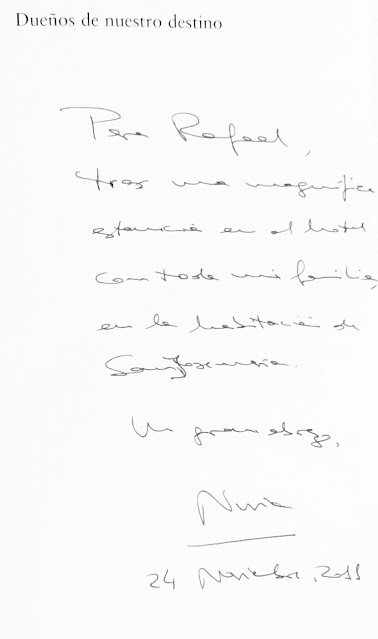 Dueños de nuestro destino
Para Rafael,
tras una magnífica
estancia en el hotel
con toda mi familia,
en la habitación de
San Josemaría.
Un gran abrazo,
Nuria
24 Noviembre, 2011